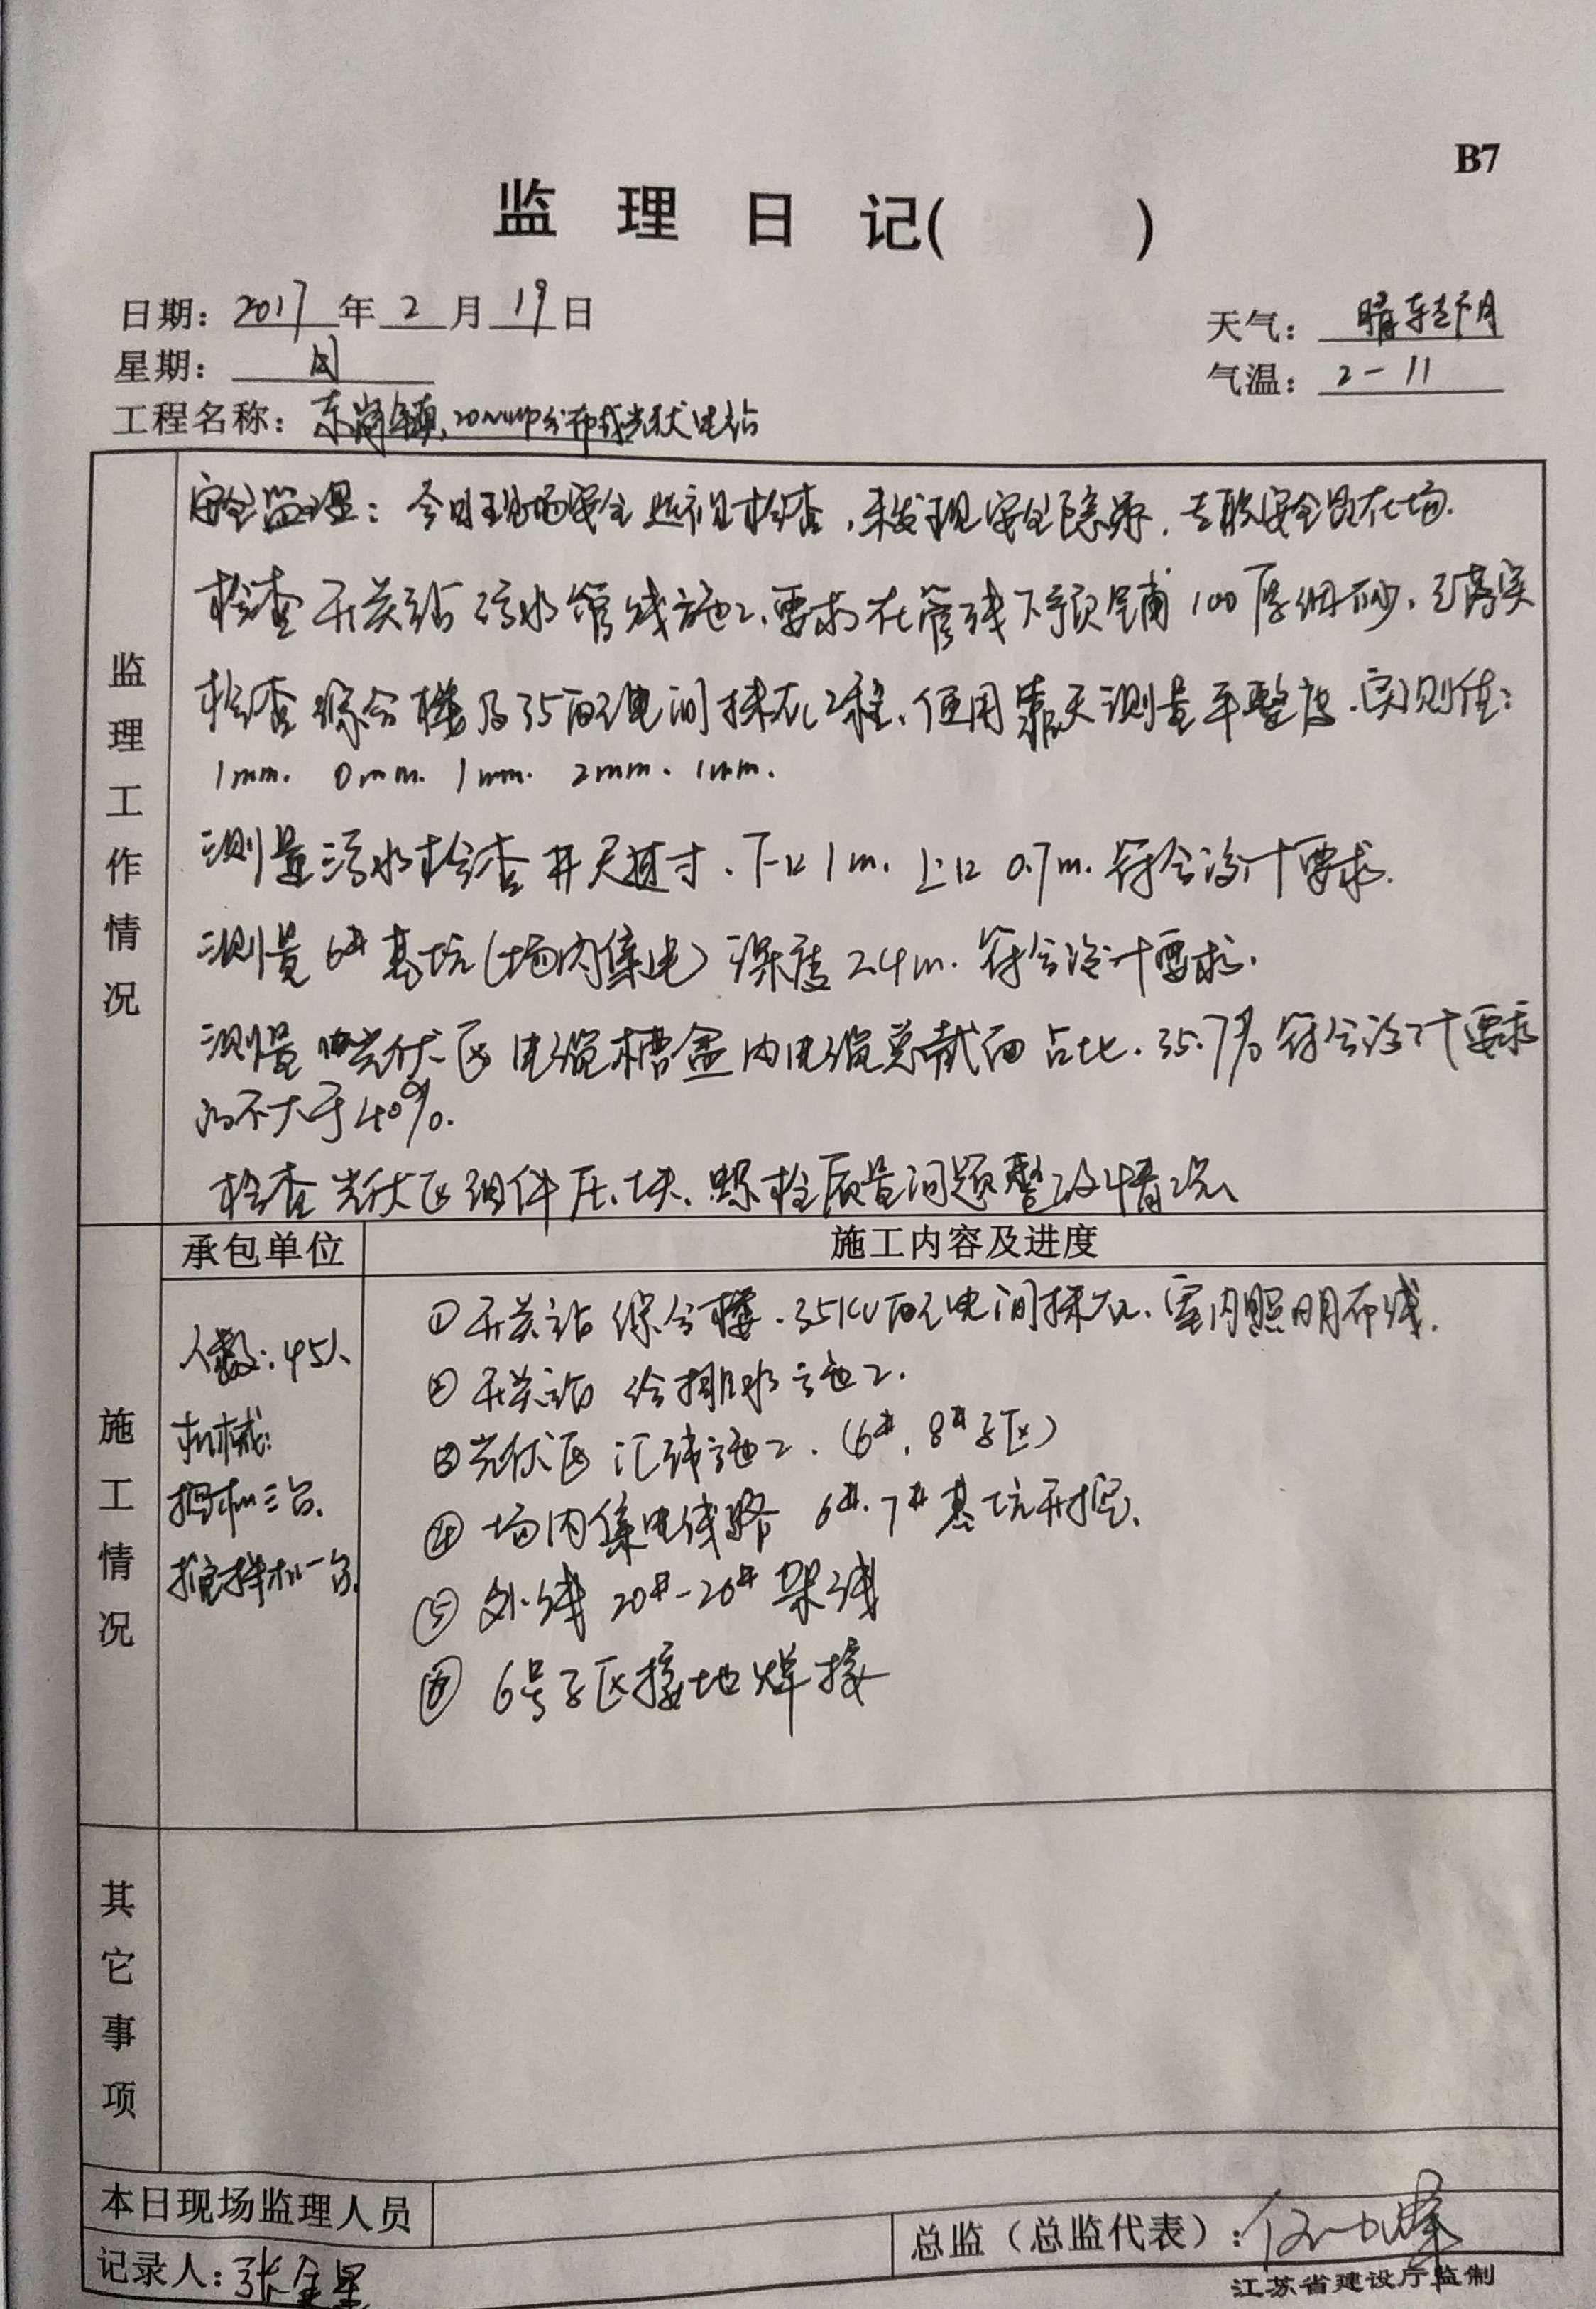 B7
监理日记( )
日期：2017年2月19日
天气：晴转阴
星期：日
气温：2-11
工程名称：东 镇20MWP分布式光伏电站
监理工作情况
安全监理：今日现场安全巡视检查，未发现安全隐患，专职安全员在场.
检查开关站污水管线施工，要求在管线下预铺100厚细砂，已落实
检查综合楼及35配电间抹灰工程，使用靠尺测量平整度，实测值：
1mm. 0mm. 1mm. 2mm. 1mm.
测量污水检查井尺寸，下口1m. 上口0.7m. 符合设计要求.
测量6#基坑(场内集电)深度2.4m. 符合设计要求.
测量光伏区电缆槽盒内电缆总截面占比.35.7% 符合设计要求
的不大于40%.
检查光伏区组件压块、螺栓质量问题整改情况
施工情况
承包单位
施工内容及进度
人数:45人
机械:
挖机三台.
搅拌机一台.
①开关站综合楼.35KV配电间抹灰、室内照明布线.
②开关站给排水施工.
③光伏区汇线施工.(6#,8#子区)
④场内集电线路 6#.7#基坑开挖.
⑤外线20#-26#架线
⑥6号子区接地焊接
其它事项
本日现场监理人员
总监（总监代表）：
记录人：张金星
江苏省建设厅监制